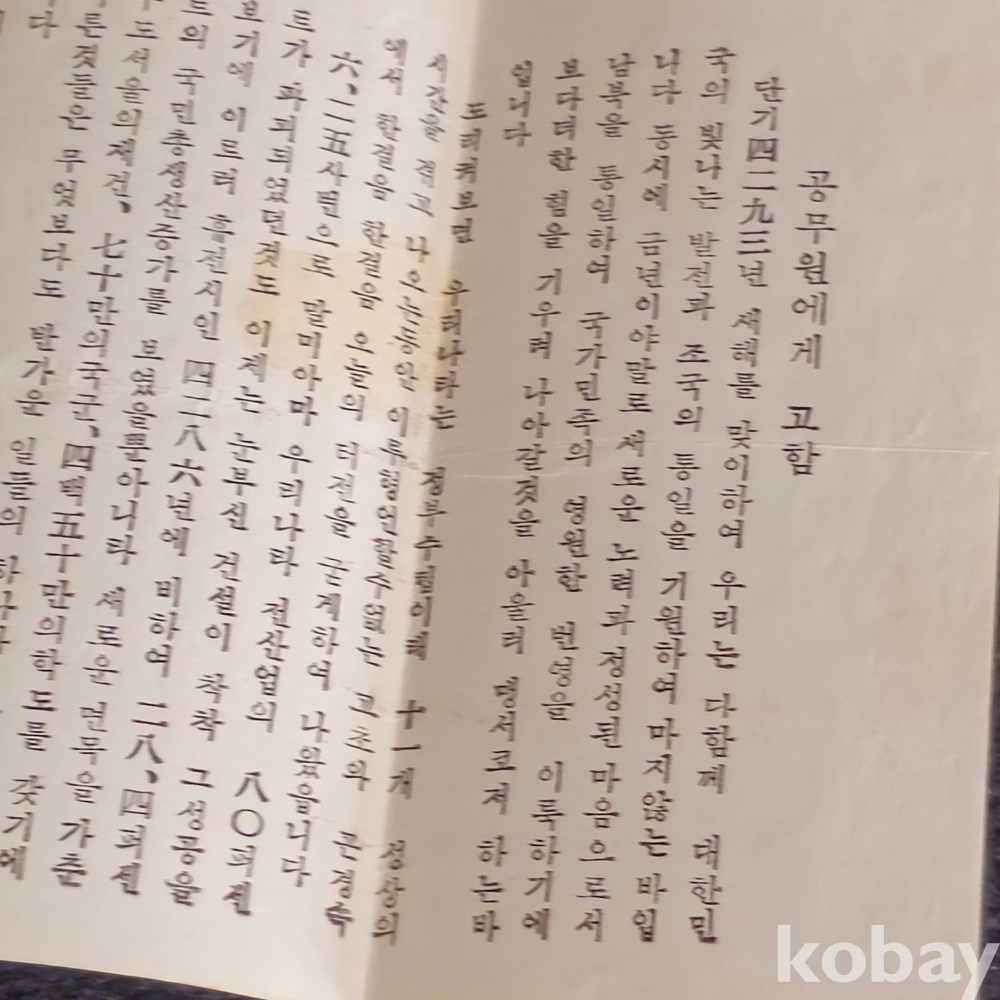 공무원에게 고함
단기四二九三년 새해를 맞이하여 우리는 다함께 대한민
국의 빛나는 발전과 조국의 통일을 기원하여 마지않는 바입
니다 동시에 금년이야말로 새로운 노력과 정성된 마음으로서
남북을 통일하여 국가민족의 영원한 번영을 이룩하기에
보다더한 힘을 기우려 나아갈것을 아울러 맹서코저 하는바
입니다
도리켜보면 우리나라는 정부수립이래 十一개 성상의
세월을 겪고 나오는동안 이루형언할수없는 고초와 큰경속
에서 한걸음 한걸음 오늘의 터전을 근게하여 나왔읍니다
六、二五사변으로 말미아마 우리나라 전산업의 八〇퍼센
트가 파괴되었던것도 이제는 눈부신 건설이 착착 그성공을
보기에 이르러 휴전시인 四二八六년에 비하여 二八、四퍼센
트의 국민총생산증가를 보였을뿐아니라 새로운 면무을 가춘
도서울의재건、七十만의국군、四백五十만의학도를 갖기에
든것들은 무엇보다도 반가운 일들의 하나
다
kobay